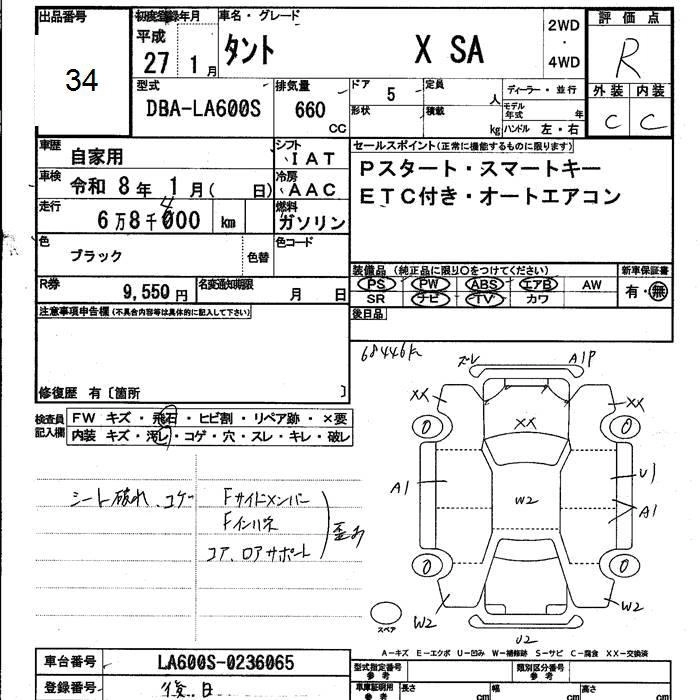 出品番号 初度登録年月 車名・グレード 評価点
34 平成 27 1月 タント X SA 2WD ・ 4WD R
型式 排気量 ドア 5 定員 人 ディーラー・並行 外装 内装
DBA-LA600S 660 cc 形状 積載 kg モデル年式 年 ハンドル 左・右 C C
車歴 自家用 シフト IAT セールスポイント(正常に機能するものに限ります)
車検 令和 8年 1月( 日) 冷房 AAC Pスタート・スマートキー
走行 6万8千4000 km 燃料 ガソリン ETC付き・オートエアコン
色 ブラック 色替 色コード
装備品 (純正品に限り○をつけてください) 新車保証書
R券 9,550円 名変通知期限 月 日 PS PW ABS エアB AW 有・無
SR ナビ TV カワ
注意事項申告欄(不具合内容等は具体的に記入して下さい) 後日品
68446K
ズレ A1P
修復歴 有〔箇所 〕
XX XX
検査員記入欄 FW キズ・飛石・ヒビ割・リペア跡・×要
内装 キズ・汚レ・コゲ・穴・スレ・キレ・破レ
0 XX 0
シート破れ、コゲ Fサイドメンバー A1 W2 U1
Fインハネ 歪み A1
コア、ロアサポート
0 0
W2 W2
スペア U2
A-キズ E-エクボ U-凹み W-補修跡 S-サビ C-腐食 XX-交換済
車台番号 LA600S-0236065 型式指定番号 参考 類別区分番号 参考
登録番号 後日 車庫証明用 参考 長さ cm 幅 cm 高さ cm